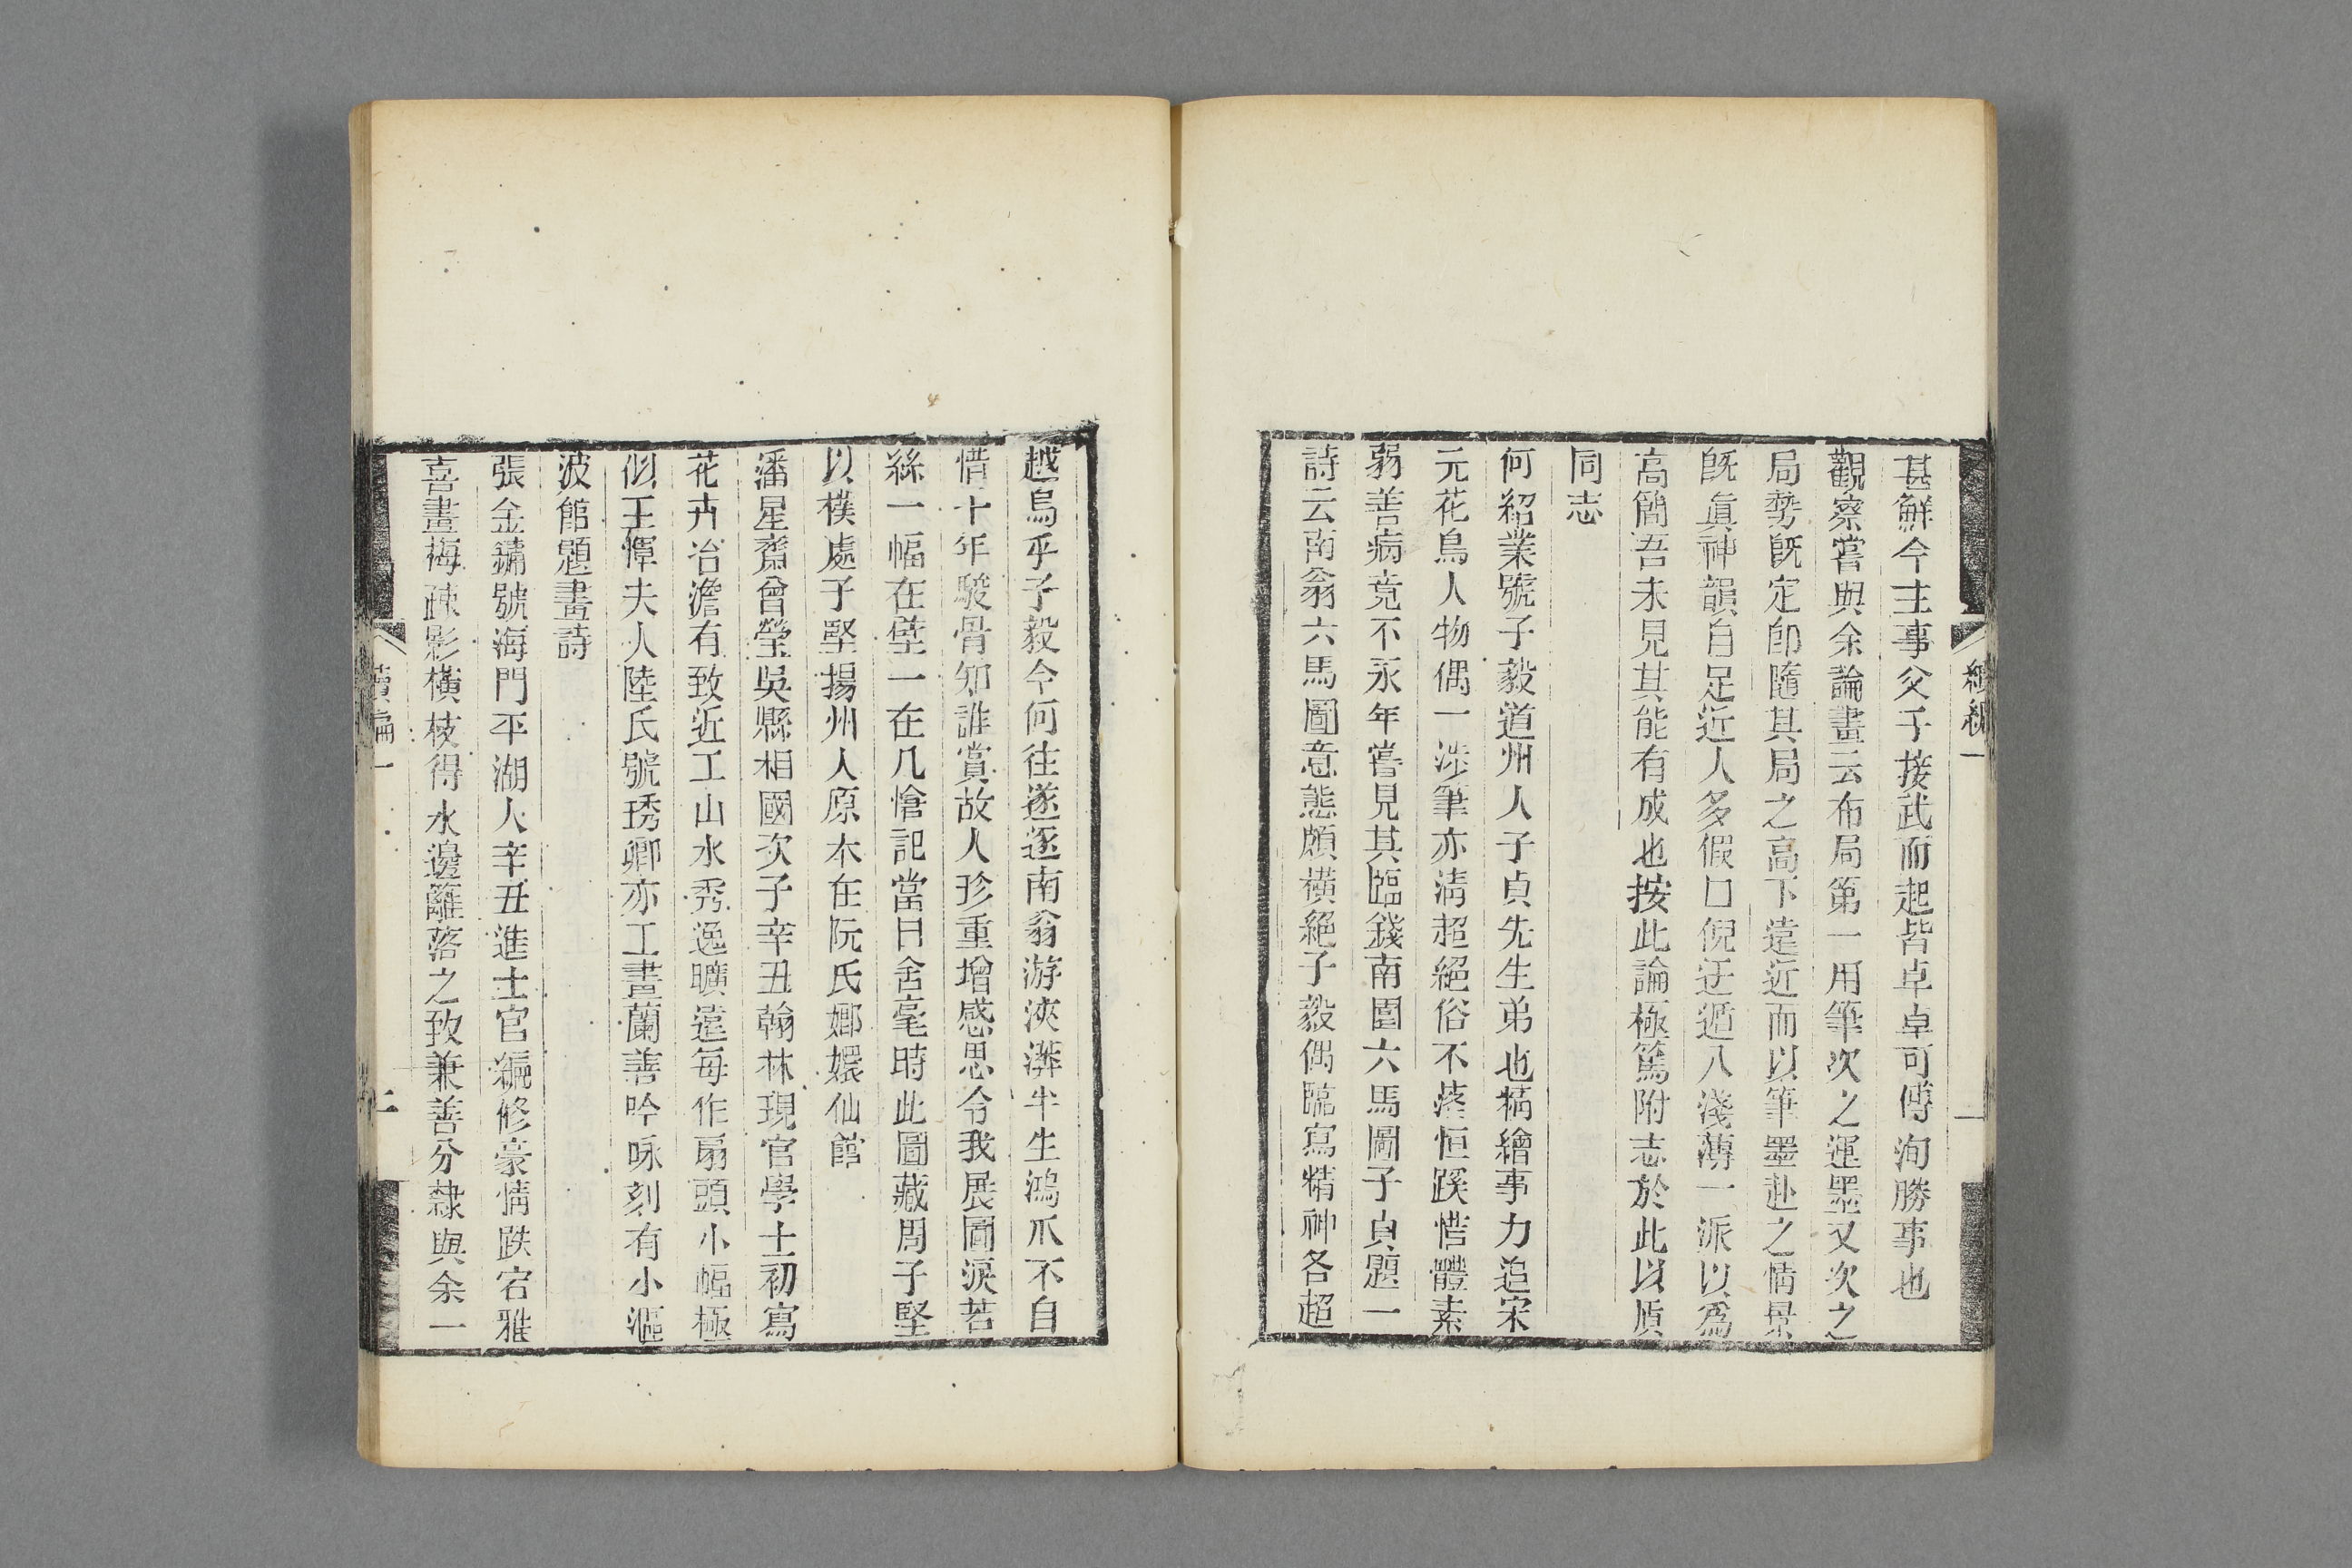 甚鮮今主事父子接武而起皆卓卓可傳洵勝事也
觀察嘗與余論畫云布局第一用筆次之運墨又次之
局勢旣定卽隨其局之高下遠近而以筆墨赴之情景
旣眞神韻自足近人多假口倪迂遁入淺薄一派以爲
高簡吾未見其能有成也按此論極篤附志於此以質
同志
何紹業號子毅道州人子貞先生弟也稱繪事力追宋
元花鳥人物偶一涉筆亦淸超絕俗不落恒蹊惜體素
弱善病竟不永年嘗見其臨錢南園六馬圖子貞題一
詩云南翁六馬圖意態頗橫絕子毅偶臨寫精神各超
越烏乎子毅今何往遂逐南翁游泱漭半生鴻爪不自
惜十年駿骨知誰賞故人珍重增感思令我展圖淚若
絲一幅在壁一在几愴記當日舍毫時此圖藏周子堅
以樸處子堅揚州人原本在阮氏嫏嬛仙館
潘星齋曾瑩吳縣相國次子辛丑翰林現官學士初寫
花卉冶澹有致近工山水秀逸曠遠每作扇頭小幅極
似王惲夫人陸氏號琇卿亦工畫蘭善吟咏刻有小漚
波館題畫詩
張金鏞號海門平湖人辛丑進士官編修豪情跌宕雅
喜畫梅疎影橫枝得水邊籬落之致兼善分隸與余一
續編一
二